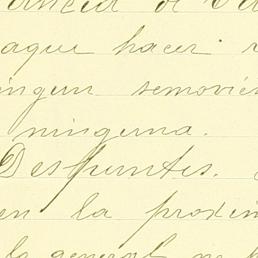 aque hacer
ningun semovie
ninguna.
Despuntes.
en la proxim
lo general no